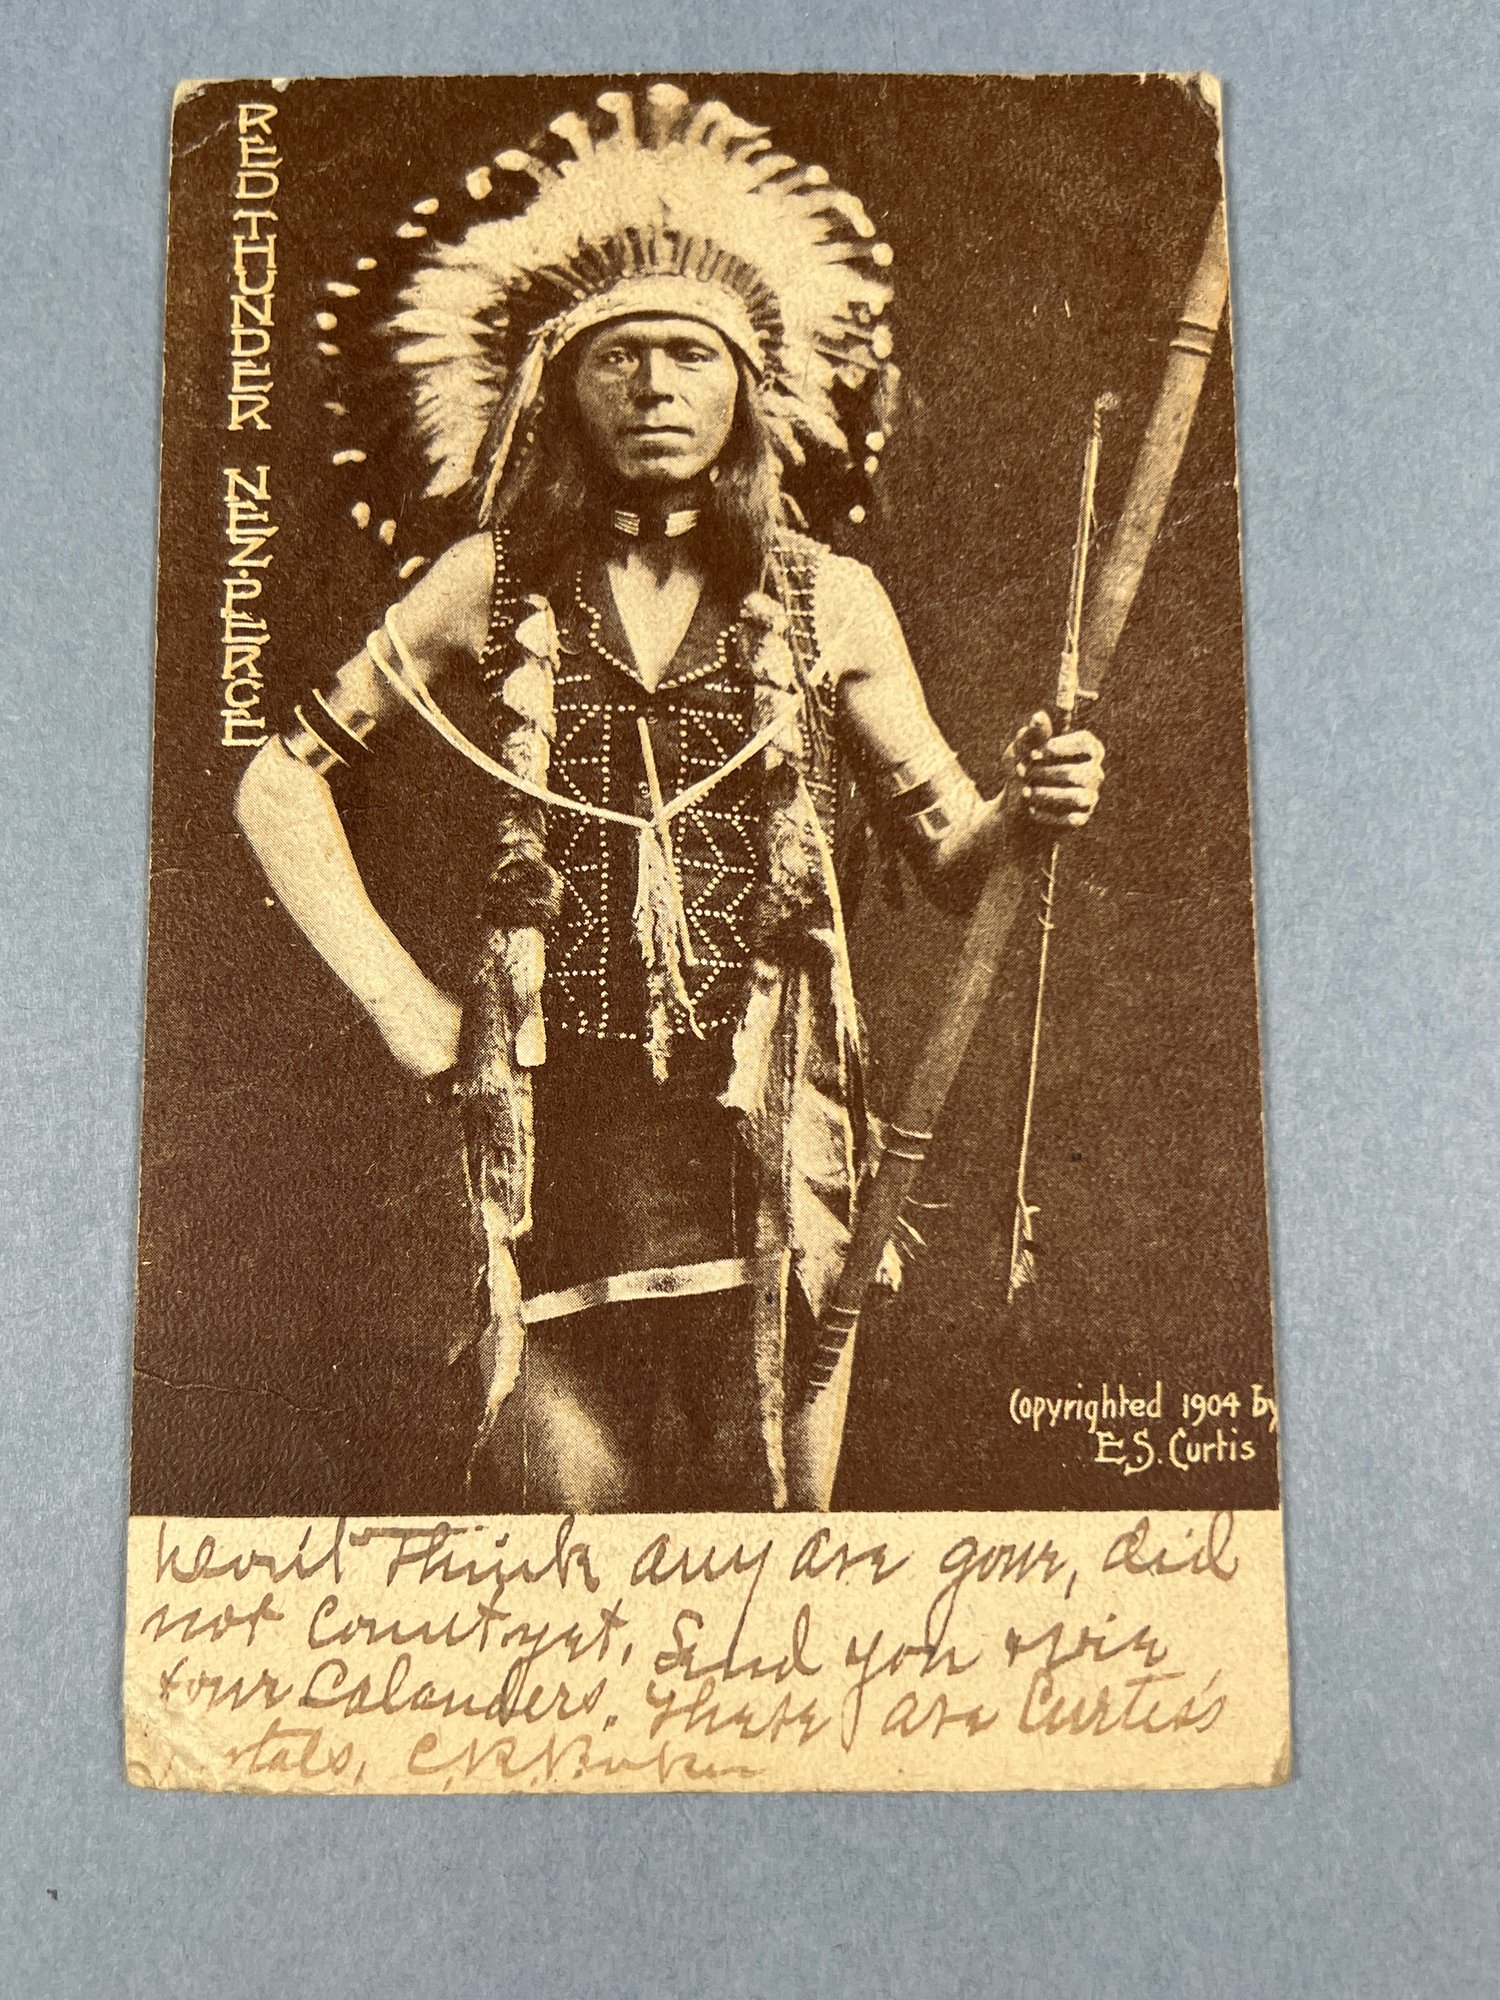 RED THUNDER NEZ-PERCE
Copyrighted 1904 by
E.S. Curtis
think any are gone, did
not count yet. Send you
four Calanders. These are Curtis's
C.R.